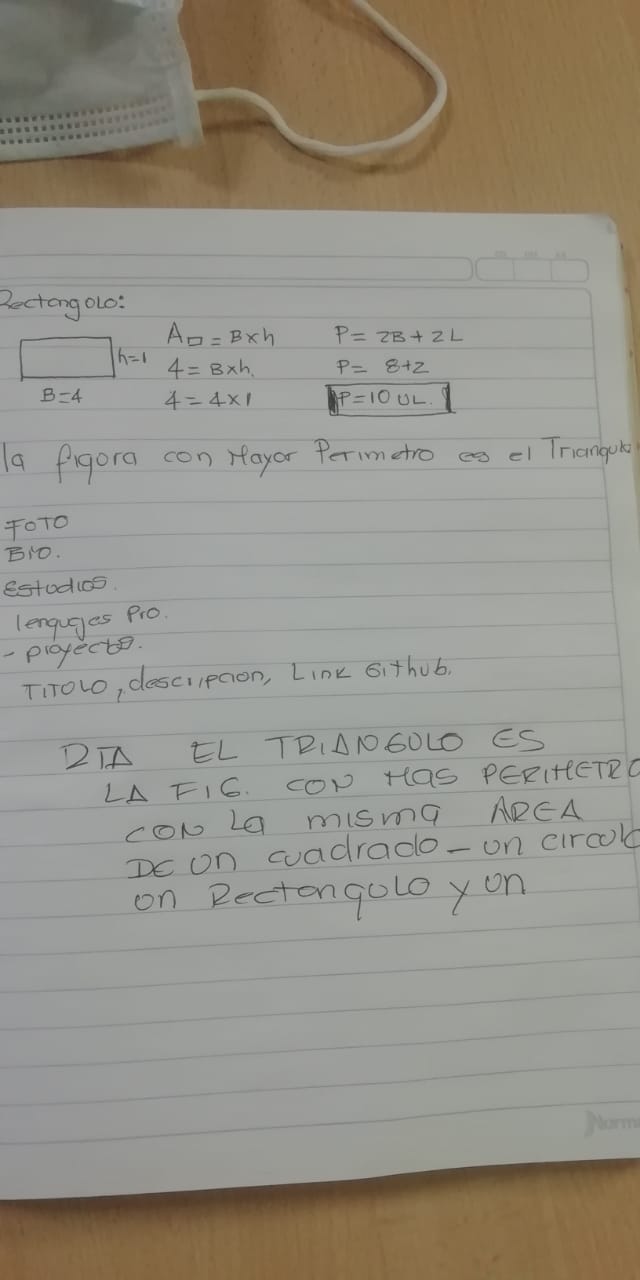 Rectangolo:
h=1
B=4
A□ = Bxh
4 = Bxh.
4 = 4x1
P= 2B+2L
P= 8+2
P=10 UL.
la figora con Mayor Perimetro es el Triangulo
FOTO
BIO.
Estudios.
lenguges Pro.
- proyecto.
TITOLO, descripcion, Link Github.
DTA EL TRIANGOLO ES
LA FIG. CON MAS PERIMETRO
CON La misma AREA
DE UN cuadrado - un circulo
un Rectongolo y un
Norma